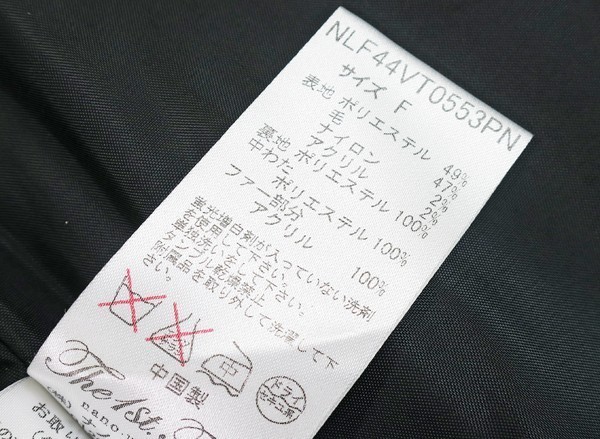 NLF44VT0553PN
サイズ F
表地 ポリエステル 49%
毛 47%
ナイロン 2%
アクリル 2%
裏地 ポリエステル 100%
中わた
ポリエステル 100%
ファー部分
アクリル 100%
蛍光増白剤が入っていない洗剤
を使用して下さい。
単独洗いをして下さい。
タンブル乾燥禁止
附属品を取り外して洗濯して下
さい。
中
ドライ
セキユ系
中国製
The 1st.
nano.u
お取り